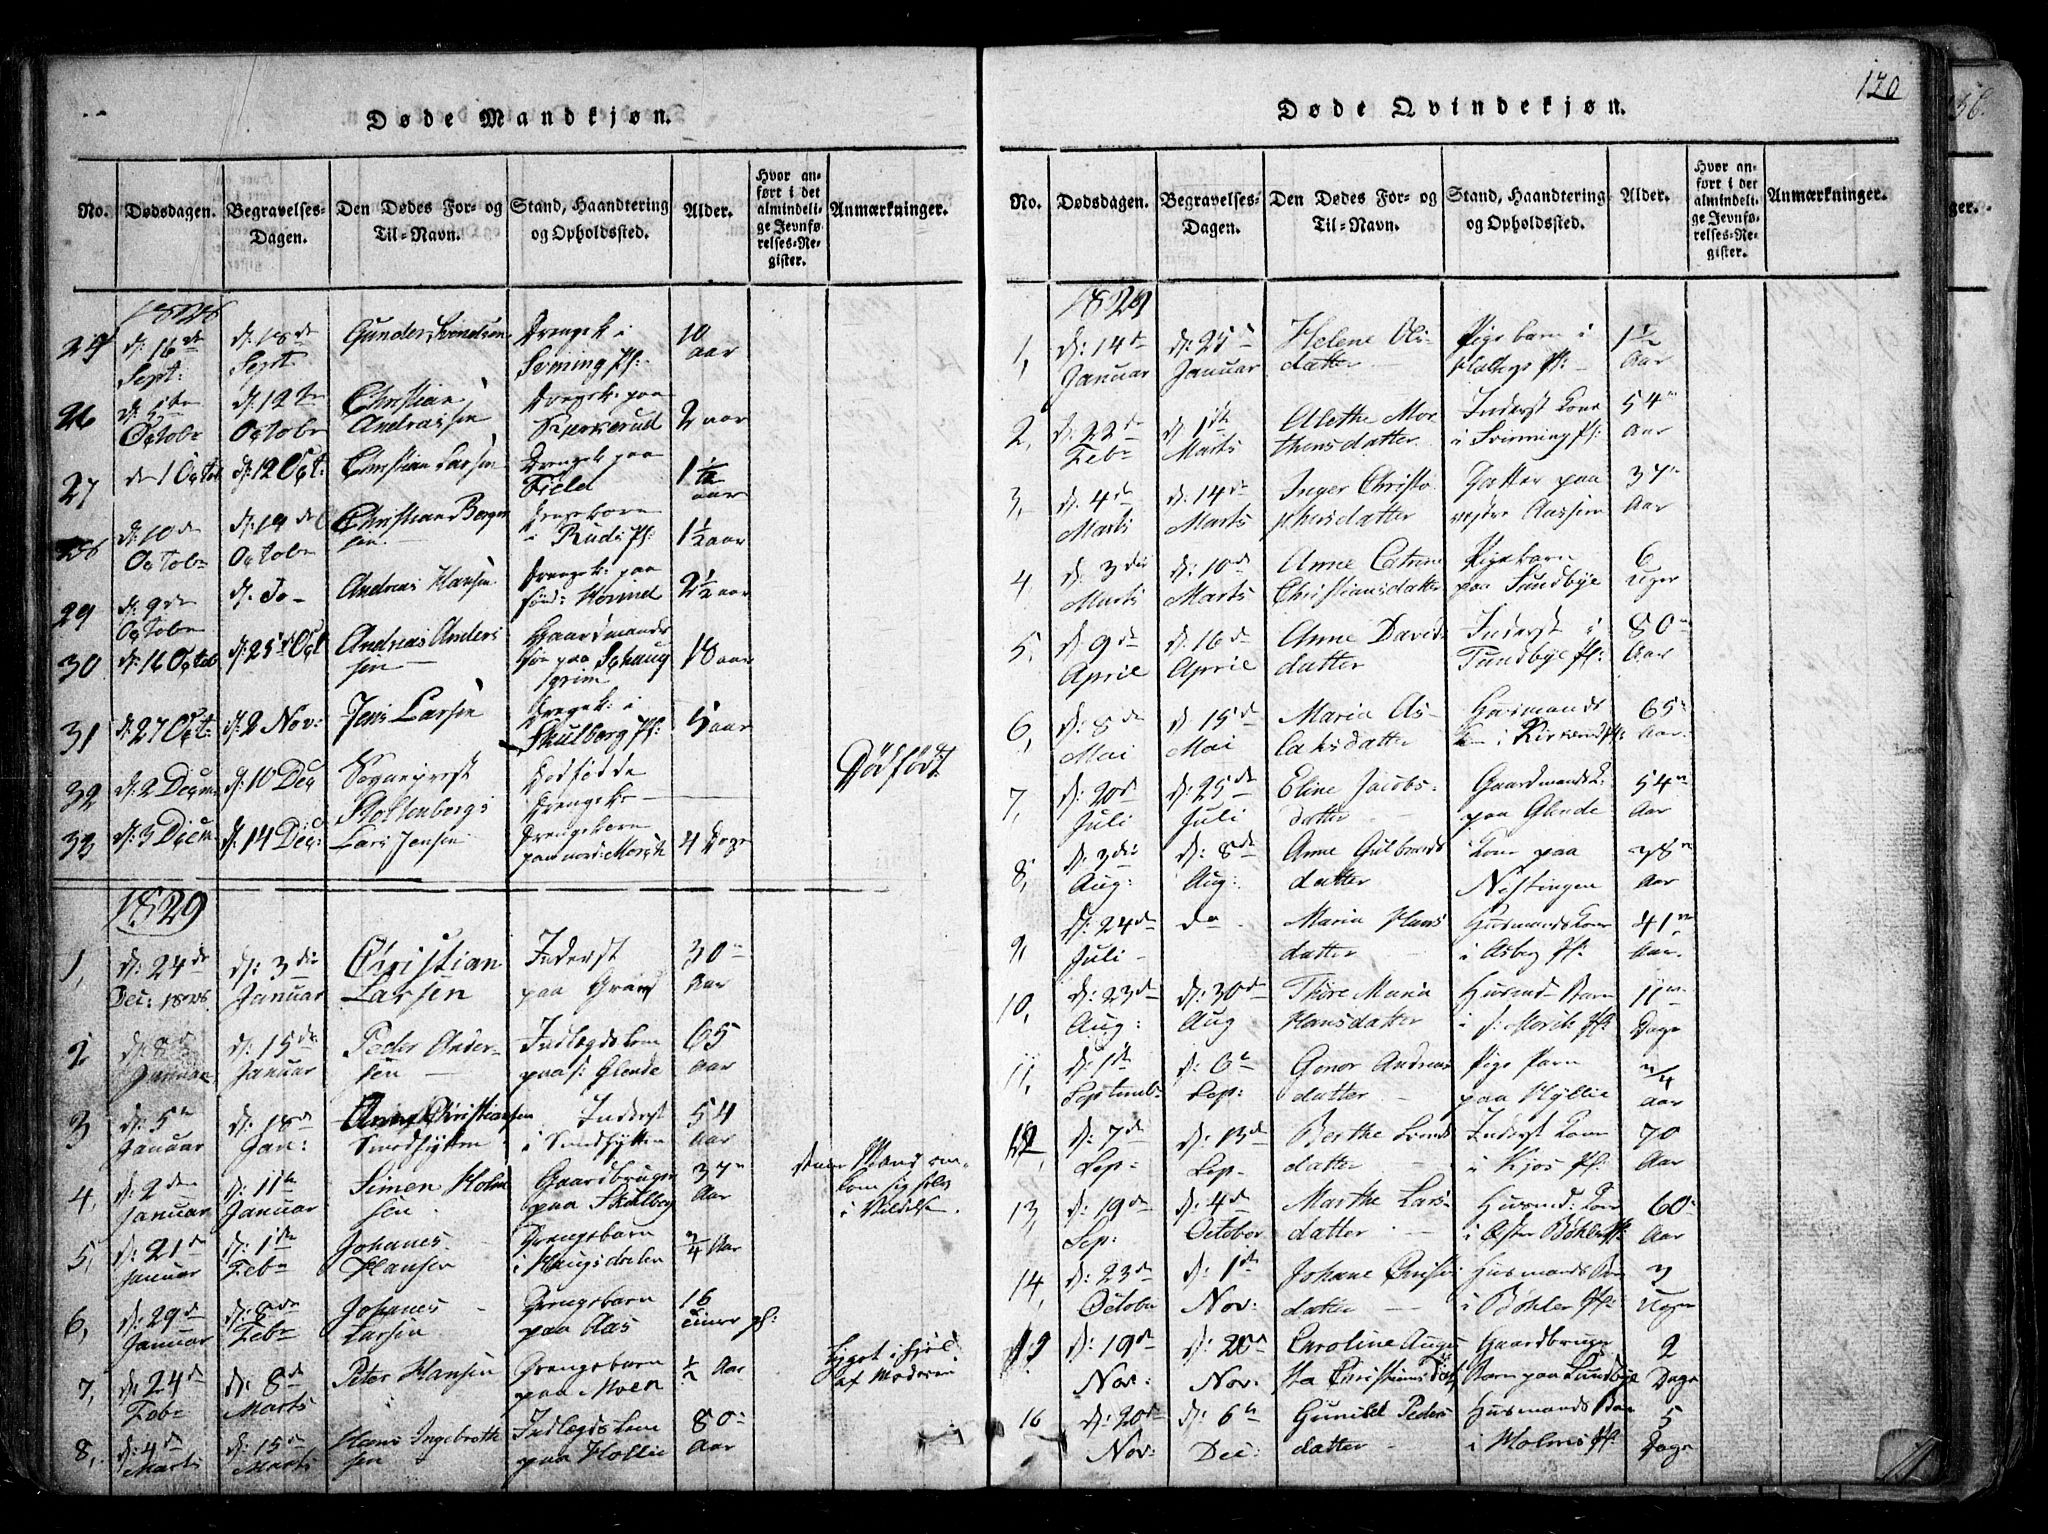 Døde Mandkjøn.
No. Dødsdagen. Begravelses-Dagen. Den Dødes For- og Til-Navn. Stand, Haandtering og Opholdssted. Alder. Hvor anført i det almindelige Jevnførelses-Register. Anmærkninger.
1828
d: 16de Sept: d: 18de Sept Gunder Svendsen Drengeb: i Svining Pl: 10 aar
26 October d: 12te October Christian Andreassen Drengeb: paa 2 aar
27 1 Octob d: 12 Oct: Christian Larsen Drengeb paa Field 1½ aar
d: 10de October d: 19de October Christian Bergersen i Ruds Pl: 1½ aar
29 d: 9de October d: Do - Andreas Hansen Drengeb: paa 2½ aar
30 d: 16 Octob d: 25de Oct Andreas Anderssen Gaardmands Søn paa 18 aar
31 d: 27 Oct: d: 2 Nov: Jens Larsen Drengeb: i Skulberg Pl: 5 aar
32 d: 2 Decm d: 10 Dec Sogneprest Stoltenbergs Dødfødde Drengeb: Dödfödt
33 d: 3 Decm d: 14 Dec: Lars Jensen Drengebarn paa nord: Morch 4 Dage
1829
1, d: 24de Dec: 1828 d: 3die Januar Christian Larsen Inderst paa 30 Aar
2 d: 8de Januar d: 15de Januar Peder Andersen Indlægdslem paa s: Glende 65 aar
3 d: 5te Januar d: 18de Jan: Christiansen Smedhytten Inderst i Smedhytten 54 aar
4, d: 2den Januar d: 11te Januar Simen Holmsen Gaardbruger paa Skulberg 37 Aar denne Mand omkom sig selv i Vildelse
5, d: 21de Januar d: 1ste Febr Johanes Hansen Drengebarn i Haugsdalen ¾ Aar
6, d: 29de Januar d: 8de Febr Johanes Larsen Drengebarn paa Aas 16 timer
7, d: 24de Febr d: 8de Marts Peter Hansen Drengebarn paa Moen ½ Aar ligget i hjæl af Moderen
8, d: 4de Marts d: 15de Marts Hans Ingebrethsen Indlægdslem paa Hollie 80 Aar
Døde Qvindekjøn.
170
No. Dødsdagen. Begravelses-Dagen. Den Dødes For- og Til-Navn. Stand, Haandtering og Opholdssted. Alder. Hvor anført i det almindelige Jevnførelses-Register. Anmærkninger.
1829
1, d: 14de Januar d: 25de Januar Helene Olsdatter Pigebarn i Pl: 1½ Aar
2, d: 22de Febr d: 1ste Marts Alethe Morthensdatter Inderst Kone i Svinning Pl: 54 Aar
3, d: 4de Marts d: 14de Marts Inger Christophersdatter Datter paa vestre Aassen 37 Aar
4, d: 3die Marts d: 10de Marts Anne Catrine Christiansdatter Pigebarn paa Sundbye 6 Uger
5, d: 9de April d: 16de April Anne Davidsdatter Inderst i Sundbye Pl: 80 Aar
6, d: 8de Mai d: 15de Mai Maria Aslaksdatter Husmands K i 65 Aar
7, d: 20de Juli d: 25de Juli Eline Jacobsdatter Gaardmands K: paa Glende 54 Aar
8, d: 3die Aug: d: 8de Aug: Anne Gulbrandsdatter Kone paa Nestingen 38 Aar
9, d: 24de Juli do Maria Hansdatter Husmands Kone i Asberg Pl: 41 Aar
10, d: 23de Aug: d: 30de Aug Thore Maria Hansdatter Husmd Barn i s: Morch Pl: 11 Dage
11, d: 1ste Septemb: d: 6te Sep: Gonor Andreasdatter Pige Barn paa Hyllie ¾ aar
12, d: 7de Sep: d: 13de Sep: Berthe Svendsdatter Inderst Kone i Kjos Pl: 70 Aar
13, d: 19de Sep: d: 4de October Marthe Larsdatter Husmd: Kone i Øster Bøhler Pl: 60 Aar
14, d: 23de October d: 1ste Nov: Johane Christidatter Husmands Barn i Bøhler Pl: 3 Uger
d: 19de Nov: d: 20de Nov: Caroline Augusta Christiansdat: Gaardbruger Barn paa Sundbye 2 Dage
16 d: 20de Nov: d: 6te Dec: Gunild Pedersdatter Husmands Barn i Holms Pl: 5 Dage